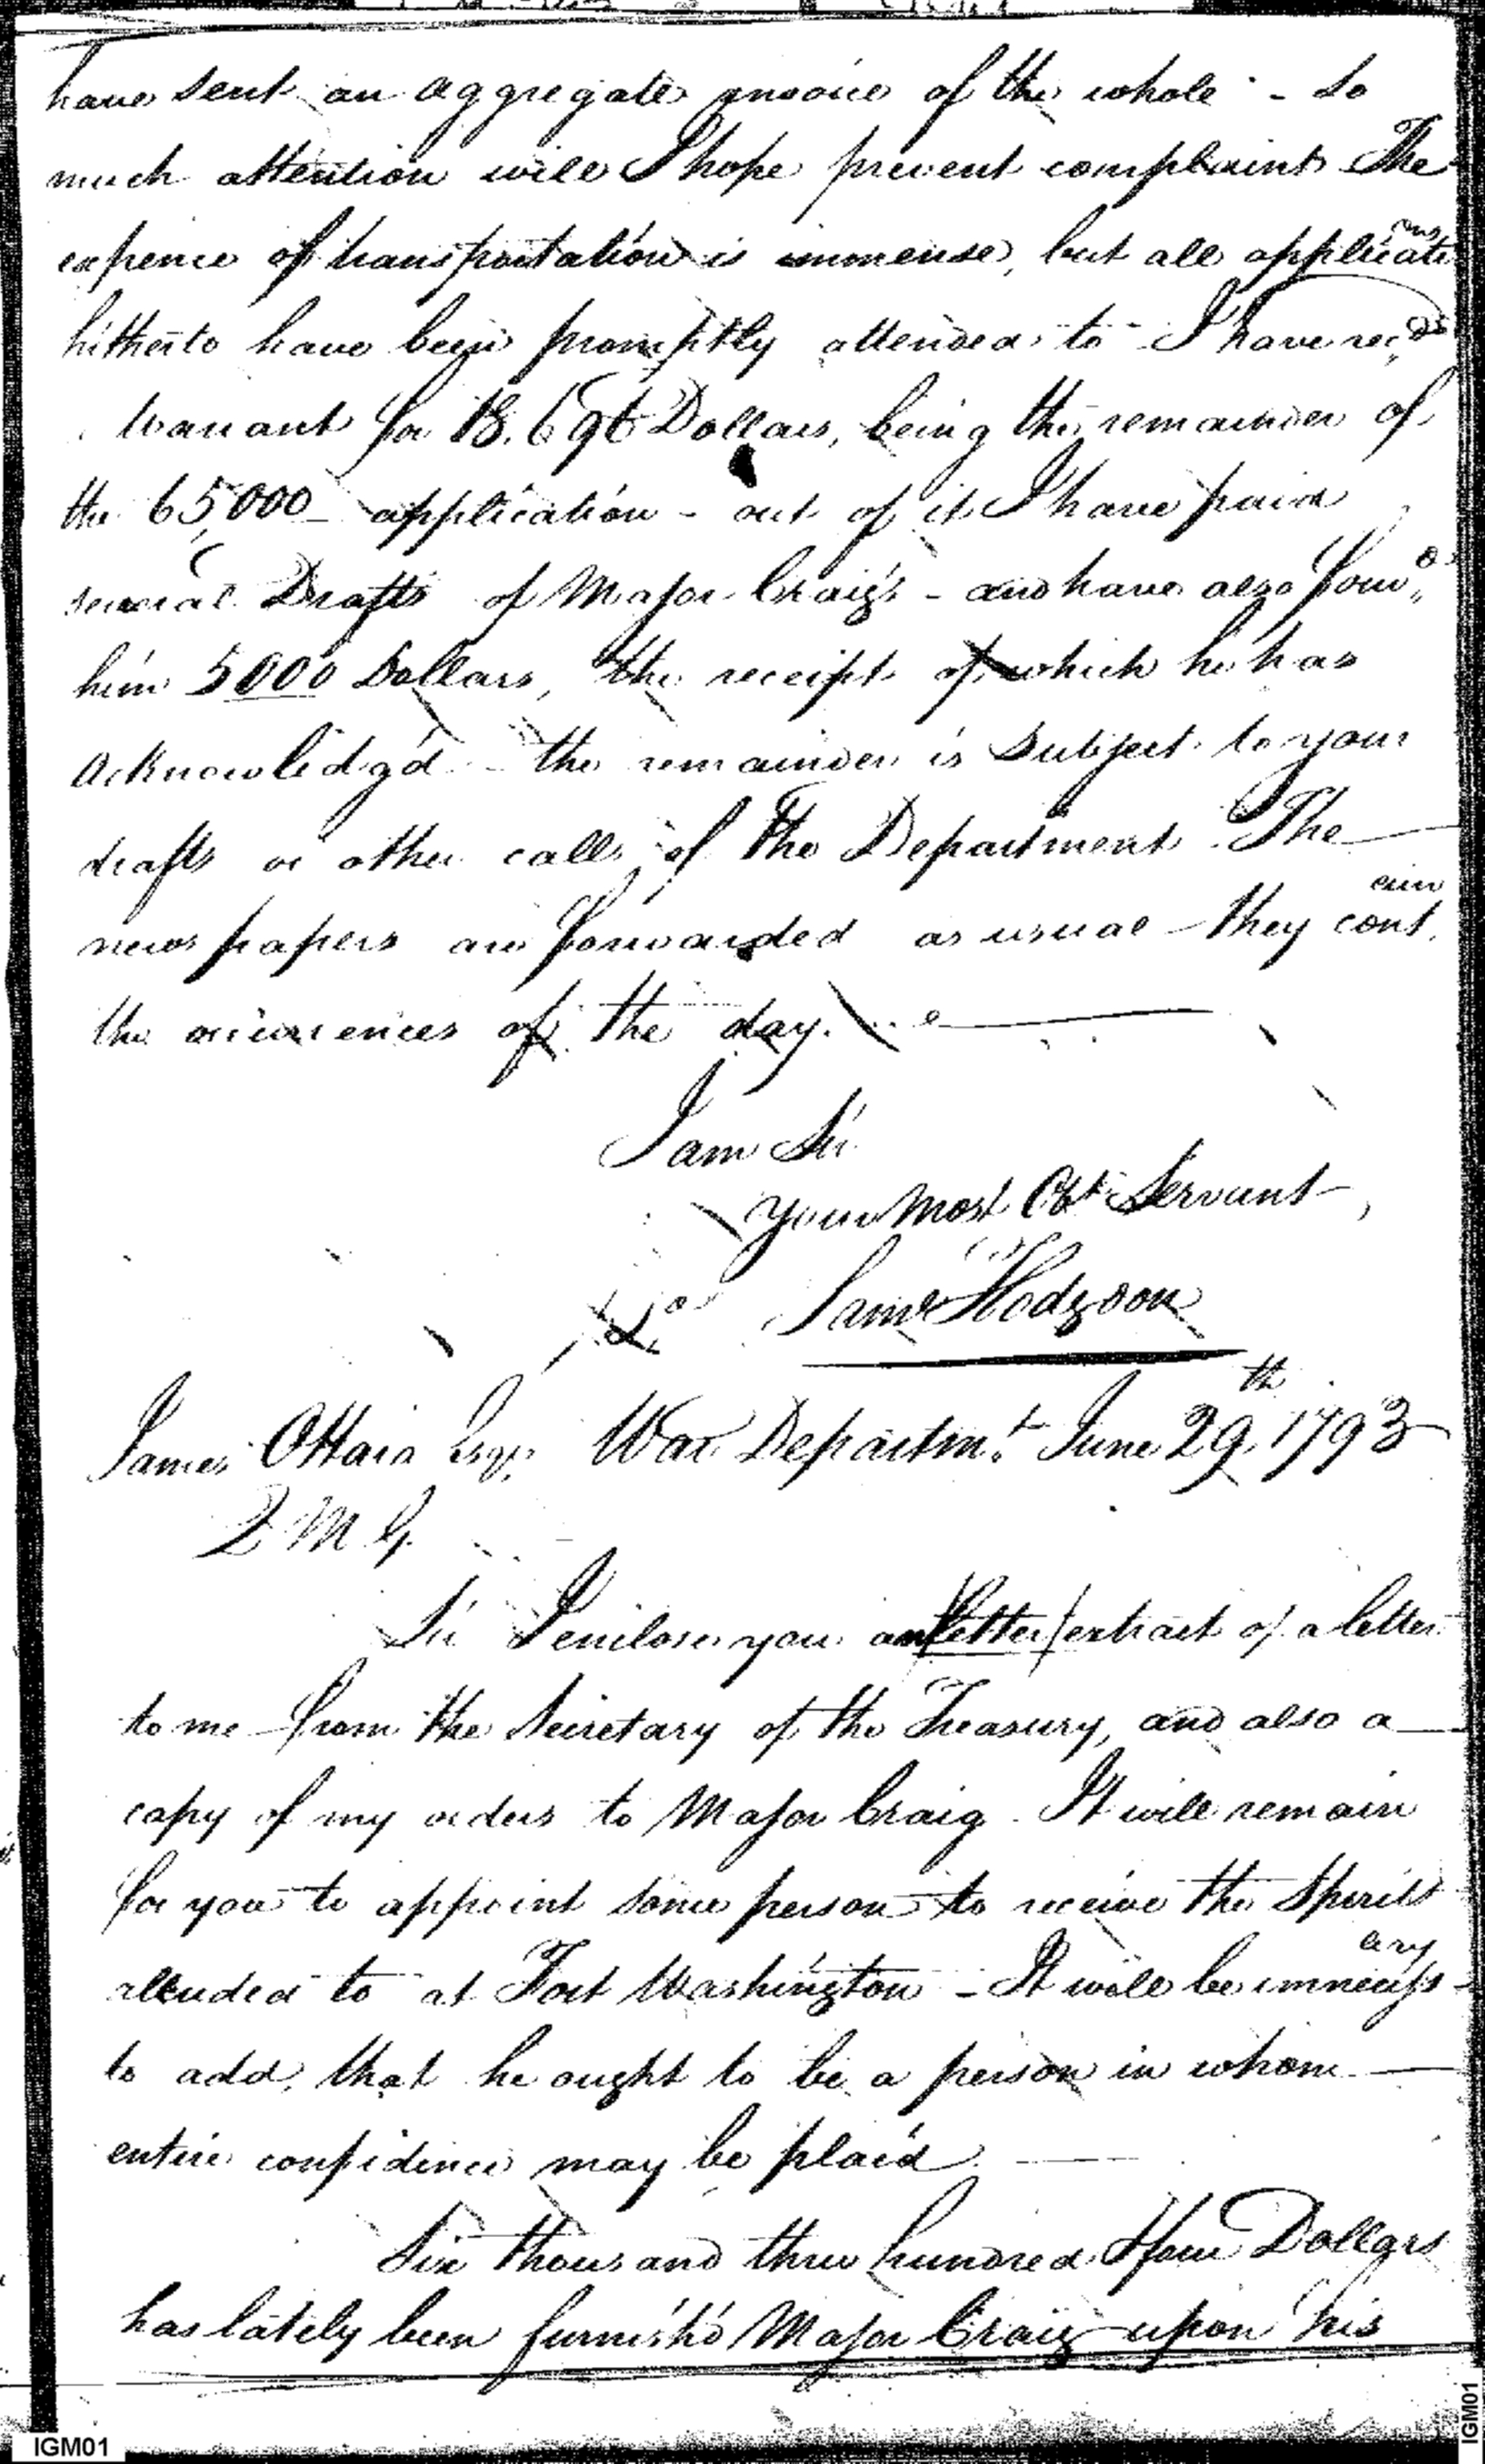 have sent an aggregate invoice of the whole - so
much attention will I hope prevent complaint The
expence of transportation is immense, but all applications
hitherto have been promptly attended to - I have rec,d
Warrant for 18.696 Dollars, being the remainder of
the 65,000 application - out of it I have paid
several Drafts of Major Craig's - and have also forw,d
him 5000 Dollars, the receipt of which he has
acknowledg'd - the remainder is subject to your
drafts or other calls of the Department. The
news papers are forwarded as usual - they contain
the occurrences of the day.
I am Sir
your most Obt Servant,
Saml Hodgdon
James OHara Esqr. War Departm.t June 29th 1793
Q M G.
Sir I enclose you an letter extract of a letter
to me from the Secretary of the Treasury, and also a
copy of my orders to Major Craig. It will remain
for you to appoint some person to receive the Spirits
alluded to at Fort Washington - It will be unnecessary
to add, that he ought to be a person in whom
entire confidence may be plac'd
Six thousand three hundred & four Dollars
has lately been furnish'd Major Craig upon his
IGM01
IGM01